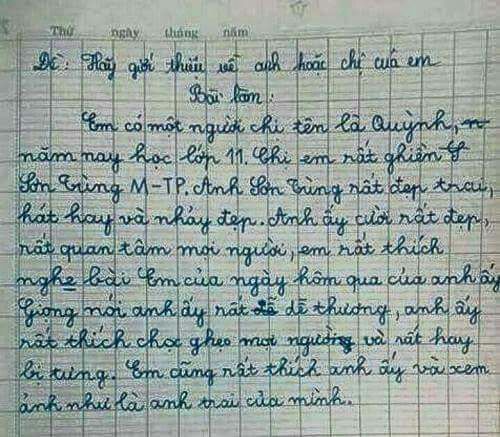 Thứ ngày tháng năm
Đề: Hãy giới thiệu về anh hoặc chị của em
Bài làm:
Em có một người chị tên là Quỳnh,
năm nay học lớp 11. Chị em rất ghiền
Sơn Tùng M-TP. Anh Sơn Tùng rất đẹp trai,
hát hay và nhảy đẹp. Anh ấy cười rất đẹp,
rất quan tâm mọi người, em rất thích
nghe bài Em của ngày hôm qua của anh ấy
Giọng nói anh ấy rất dễ thương, anh ấy
rất thích chọc ghẹo mọi người và rất hay
bị tưng. Em cũng rất thích anh ấy và xem
ảnh như là anh trai của mình.